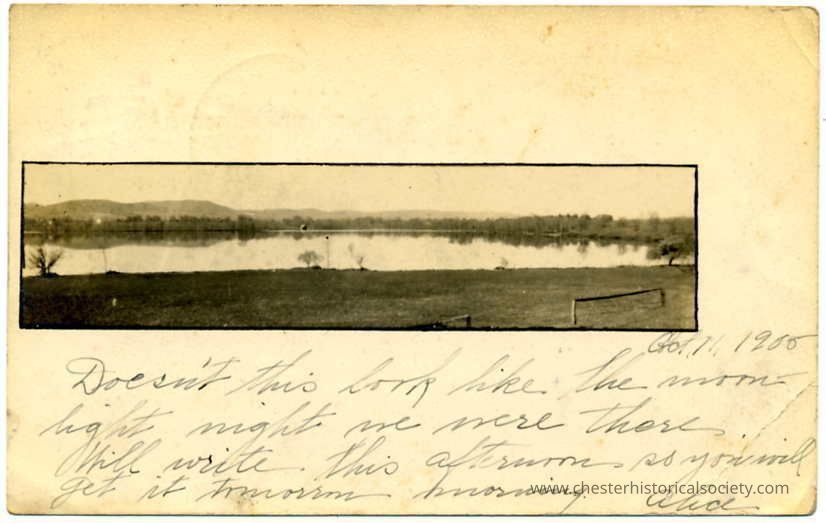 Oct. 11, 1905
Doesn't this look like the moon-
light night we were there.
Will write this afternoon so you will
get it tomorrow morning. Alice
www.chesterhistoricalsociety.com